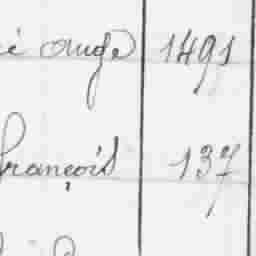 ié ange 1491
François 137